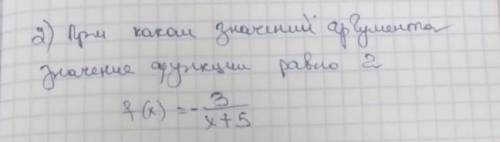 2) При каком значении аргумента
значение функции равно 2
f(x) = -3/(x+5)